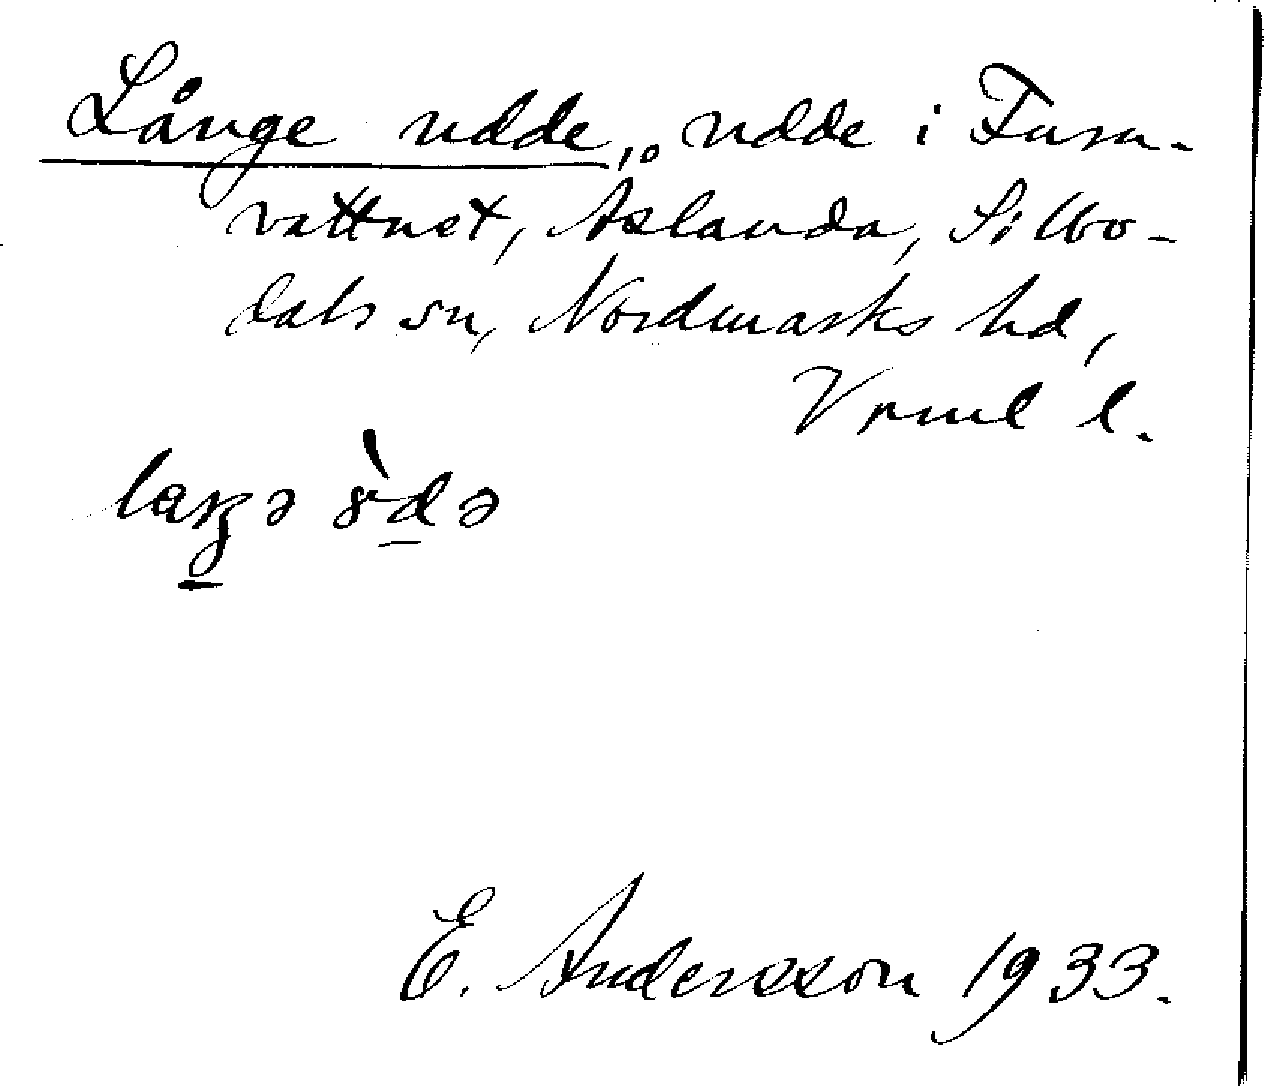 Långe udde, udde i Furu-
vattnet, Åslanda, Silbo-
dals sn, Nordmarks hd,
Vrml l.
E. Andersson 1933.